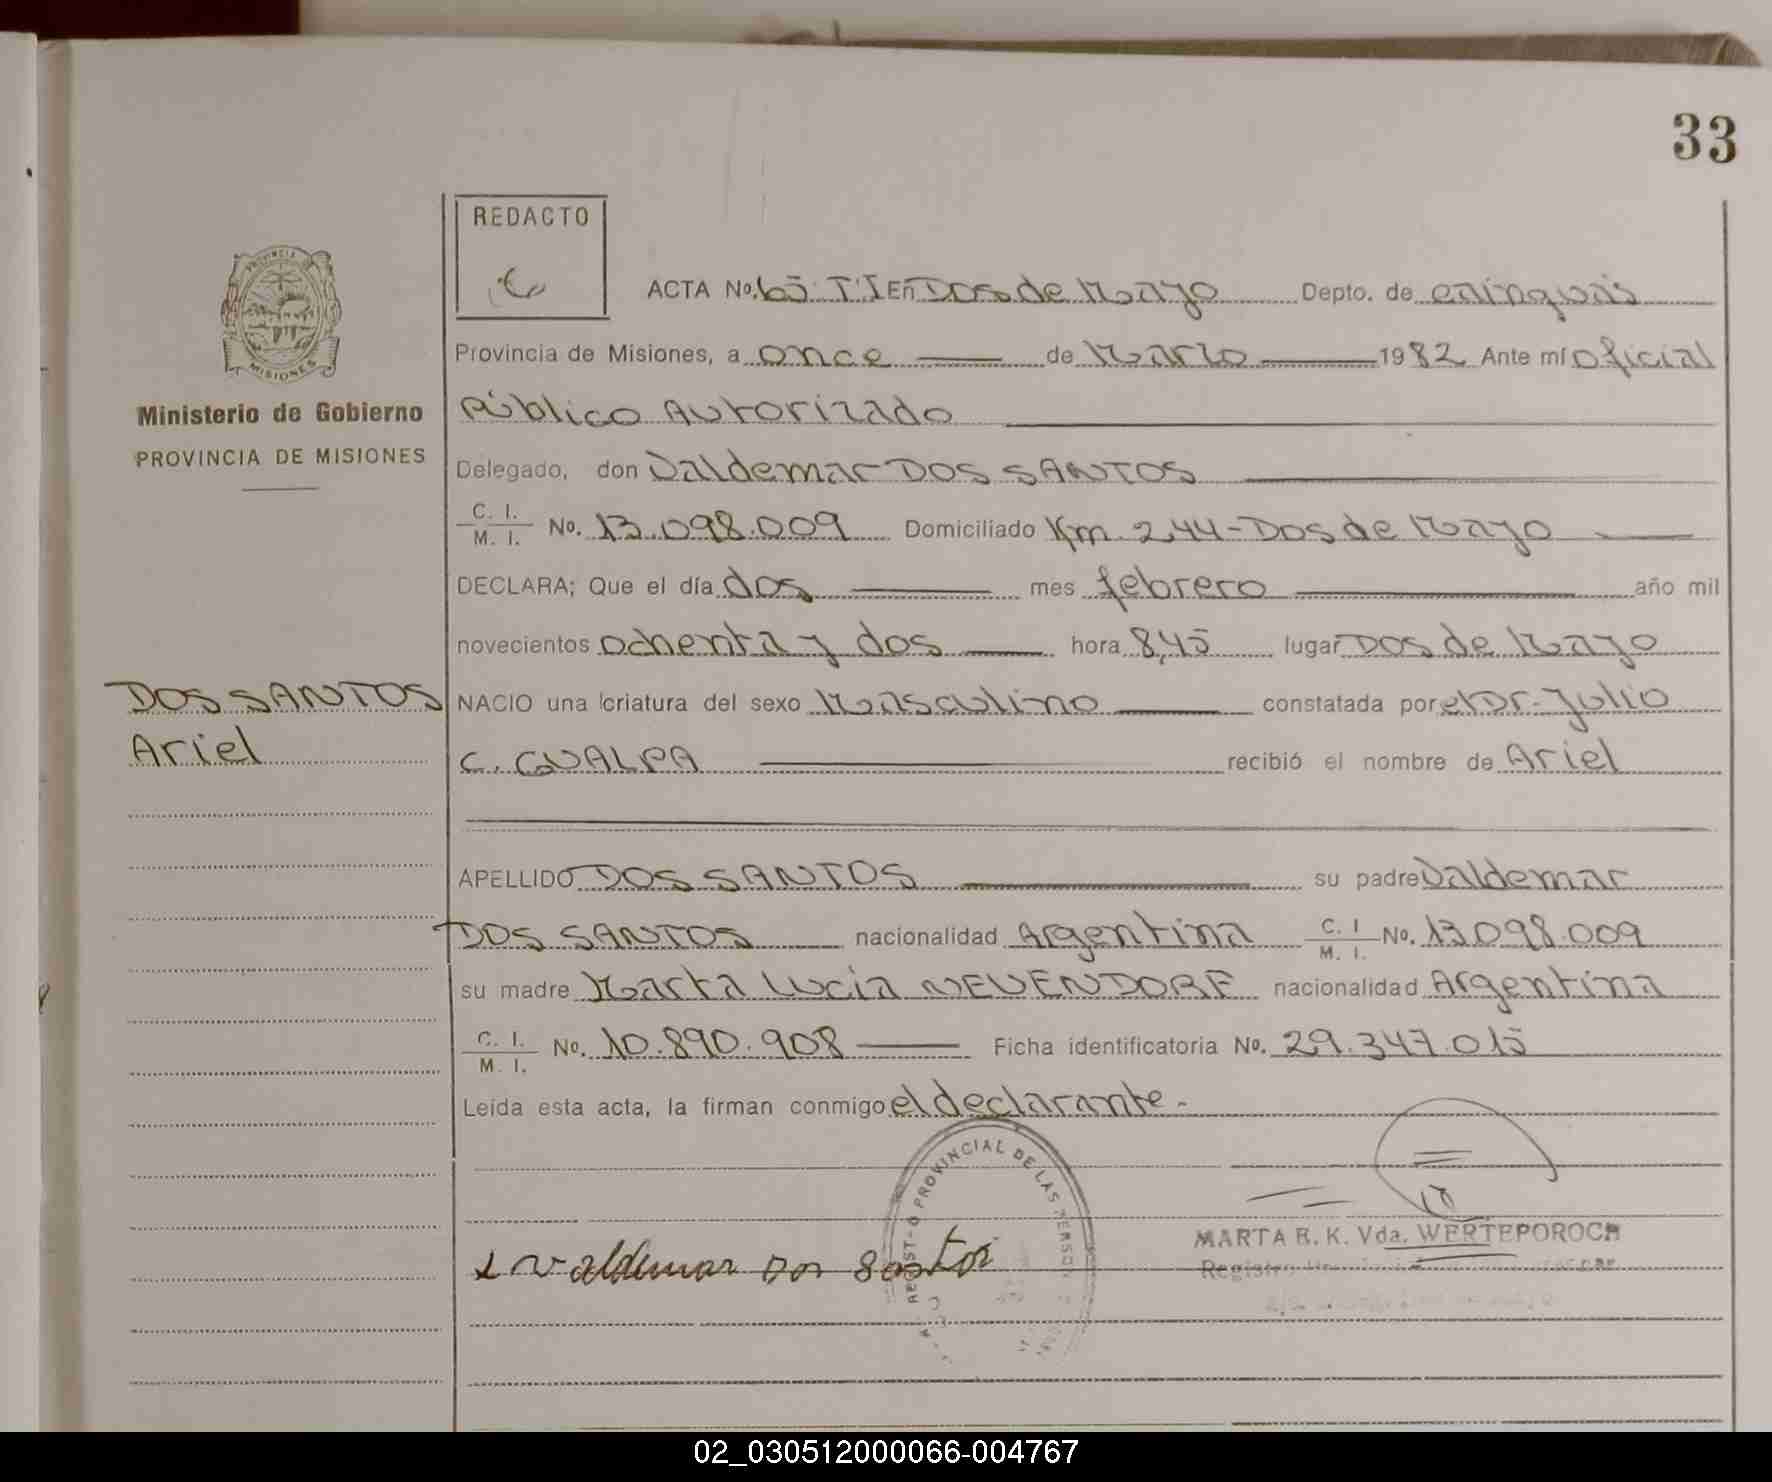 33
REDACTO
ACTA No. 65 T°I En Dos de Mayo Depto. de Cainguás
Provincia de Misiones, a once de Marzo 1982 Ante mí oficial
Ministerio de Gobierno
Público Autorizado
PROVINCIA DE MISIONES
Delegado, don Valdemar DOS SANTOS
C. I.
M. I. No. 13.098.009 Domiciliado Km. 244-Dos de Mayo
DECLARA; Que el día dos mes febrero año mil
novecientos ochenta y dos hora 8,45 lugar Dos de Mayo
DOS SANTOS
Ariel
NACIO una criatura del sexo Masculino constatada por el Dr. Julio
C. GUALPA recibió el nombre de Ariel
APELLIDO DOS SANTOS su padre Valdemar
DOS SANTOS nacionalidad Argentina C. I. M. I. No. 13.098.009
su madre Marta Lucía NEUENDORF nacionalidad Argentina
C. I.
M. I. No. 10.890.908 Ficha identificatoria No. 29.347.015
Leída esta acta, la firman conmigo el declarante.-
PROVINCIAL DE LAS
MARTA R. K. Vda. WERTEPOROCH
Valdemar Dos Santos
02_030512000066-004767